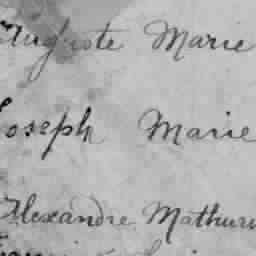 Auguste Marie
Joseph Marie
Alexandre Mathurin